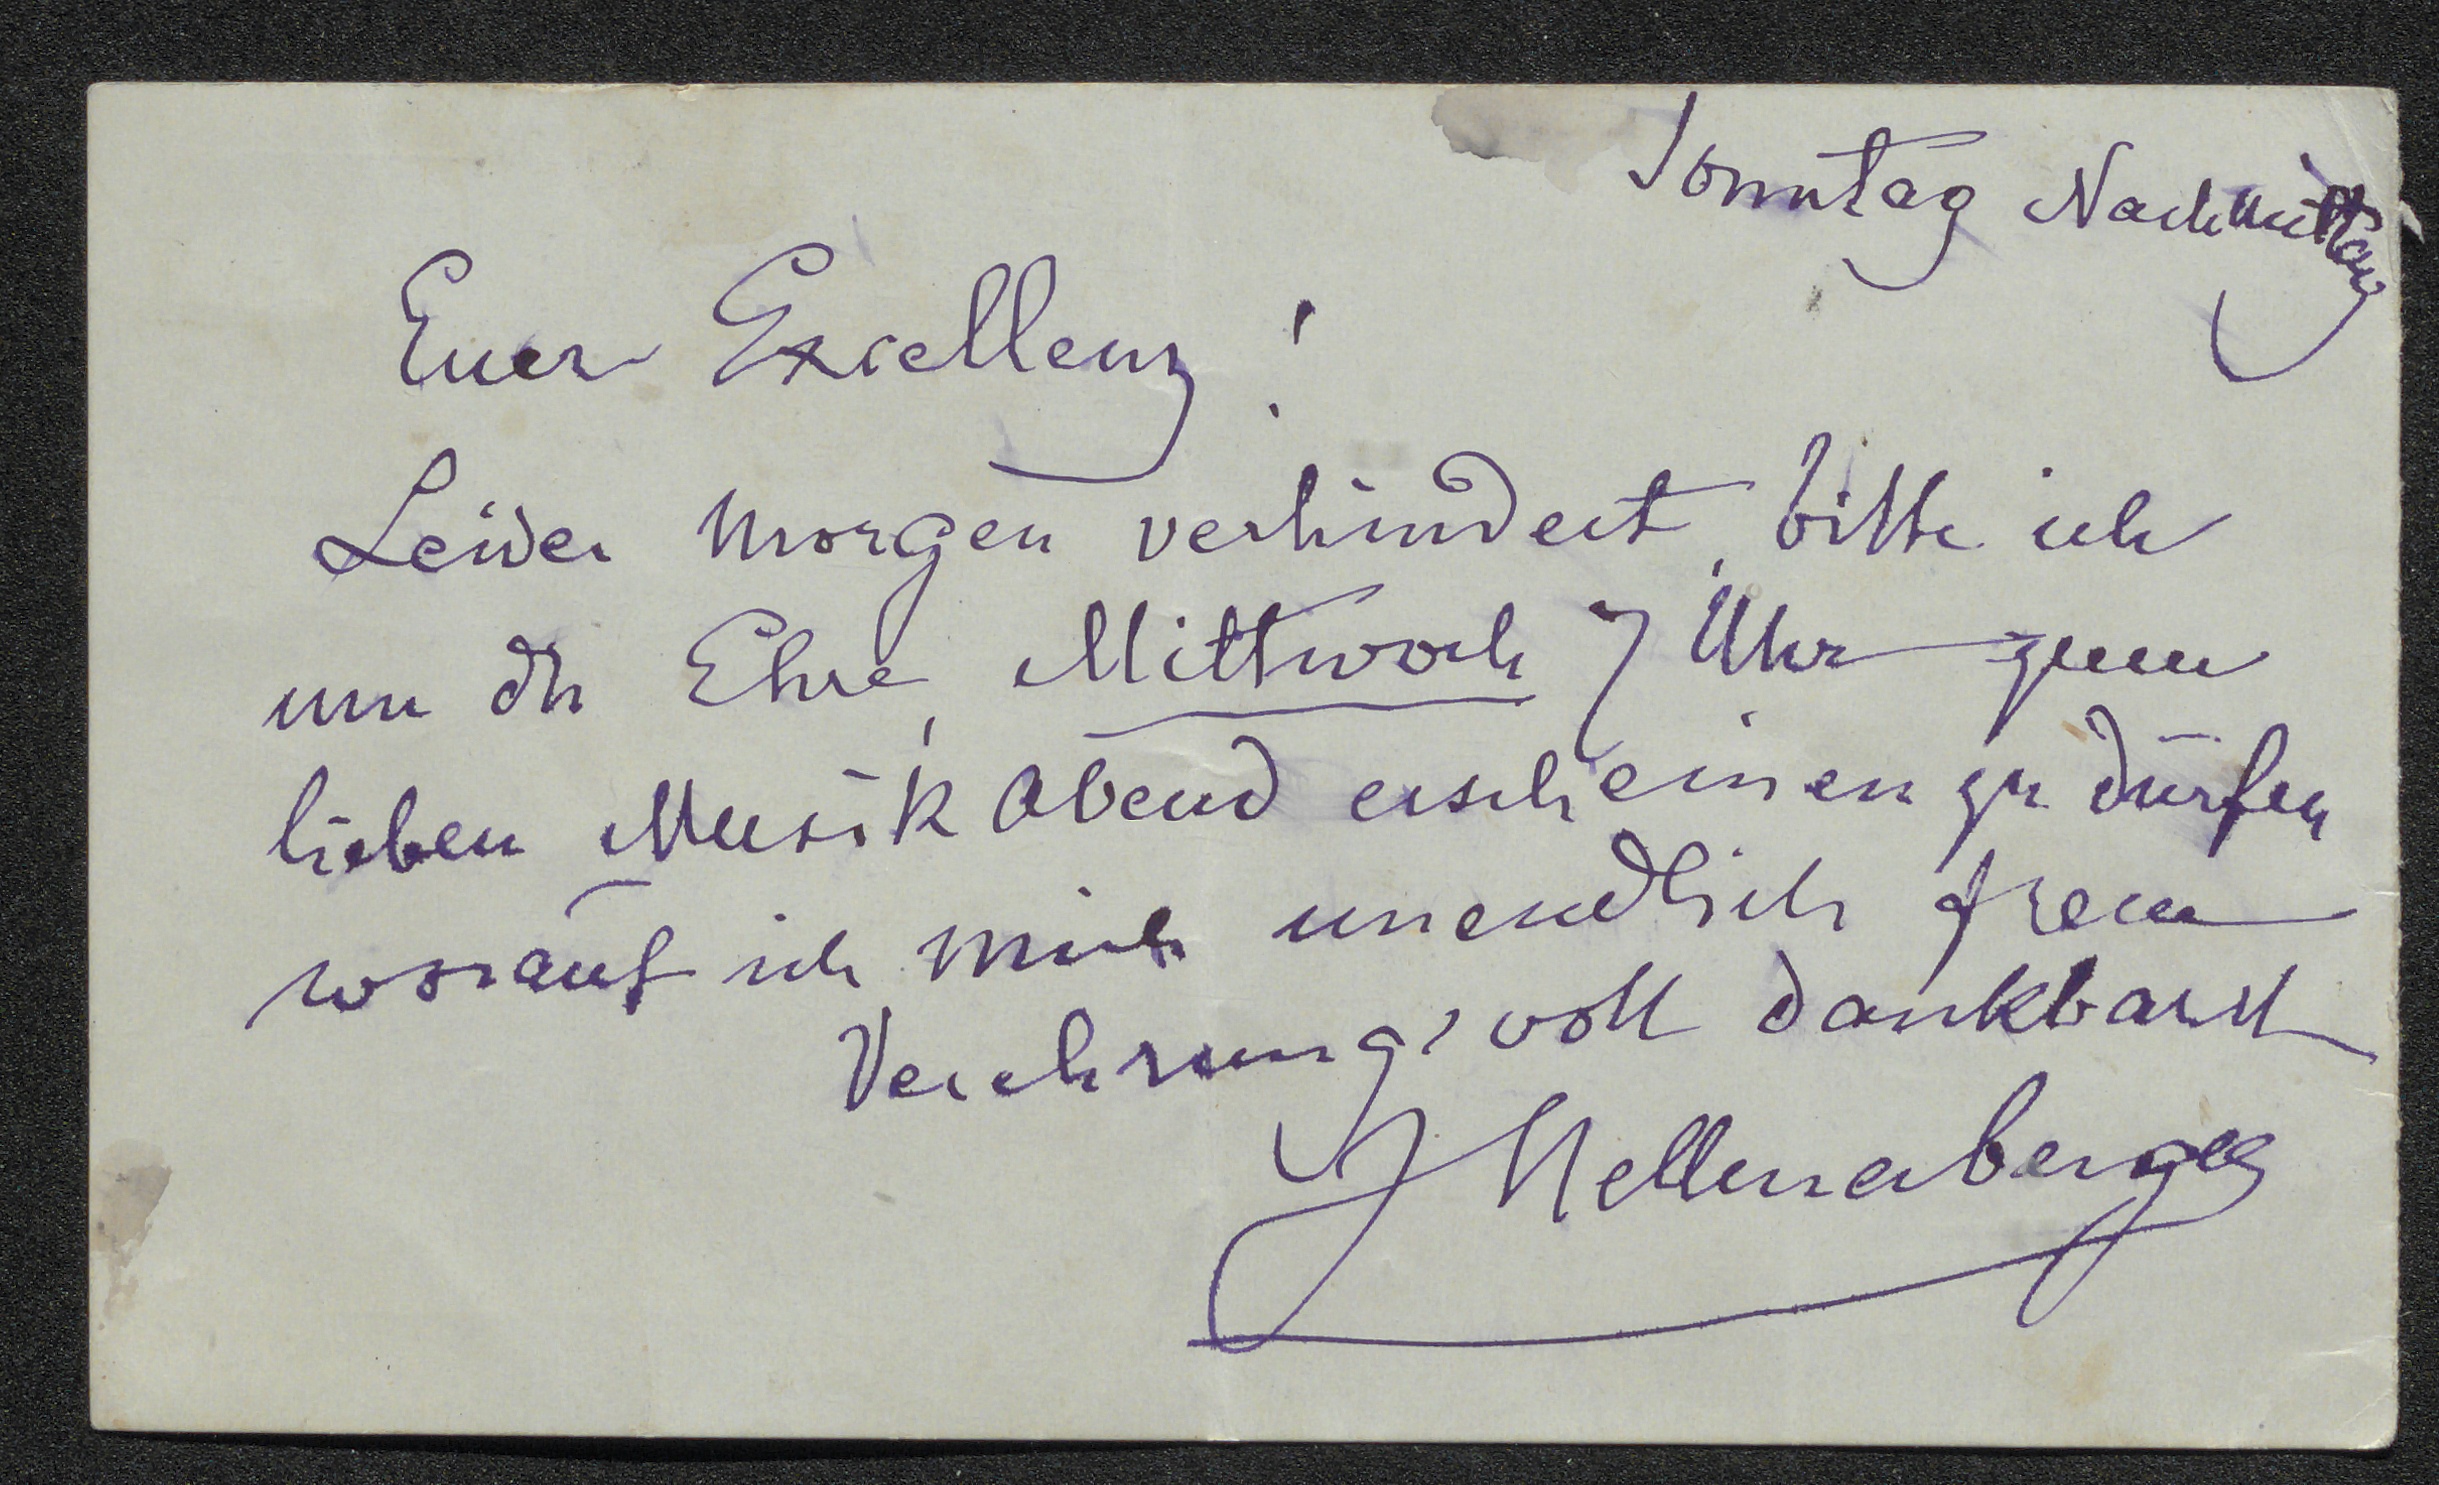 Sonntag Nachmittag
Euer Excellenz!
Leider morgen verhindert, bitte ich
um die Ehre, Mittwoch 7 Uhr zum
lieben Musik Abend erscheinen zu dürfen
worauf ich mich unendlich freue
Verehrungsvoll dankbarst
J Hellmesberger